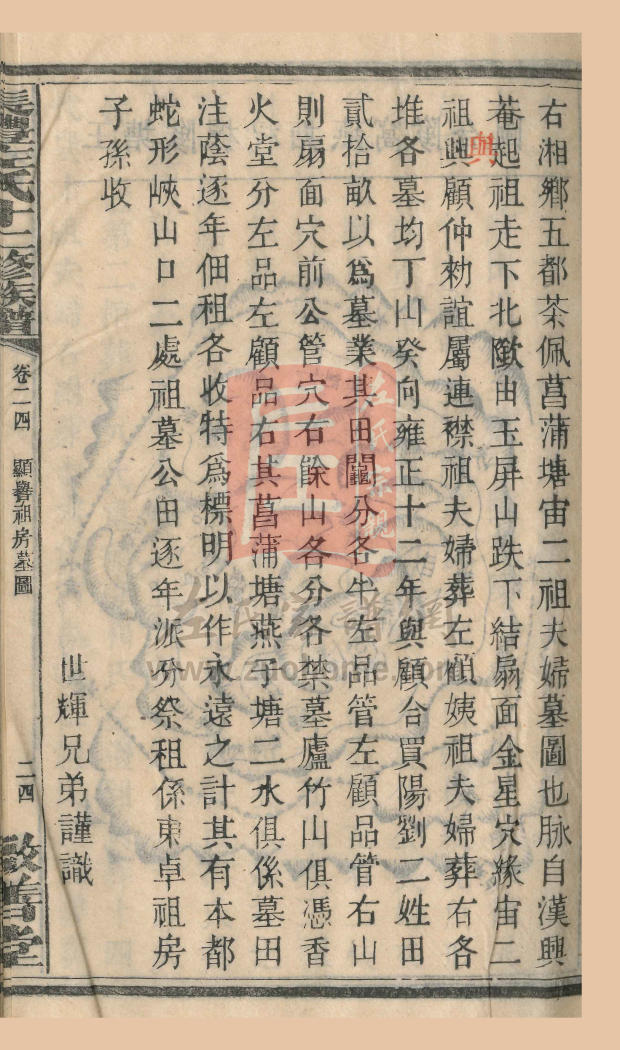 右湘鄉五都茶佩菖蒲塘宙二祖夫婦墓圖也脉自漢興
菴起祖走下北嶔由玉屏山跌下結扇面金星穴緣宙二
祖興顧仲勑誼屬連襟祖夫婦葬左顧姨祖夫婦葬右各
與
堆各墓均丁山癸向雍正十二年與顧合買陽劉二姓田
貳拾畝以爲墓業其田鬮分各半左品管左顧品管右山
則扇面穴前公管穴右餘山各分各禁墓廬竹山俱憑香
火堂分左品左顧品右其菖蒲塘燕子塘二水俱係墓田
注蔭逐年佃租各收特爲標明以作永遠之計其有本都
蛇形峽山口二處祖墓公田逐年派分祭祖係東卓祖房
子孫收
世輝兄弟謹識
左氏十二修族譜
卷二四 顯譽祖房墓圖
二四
敦善堂
左氏宗親
www.zuojiome.com